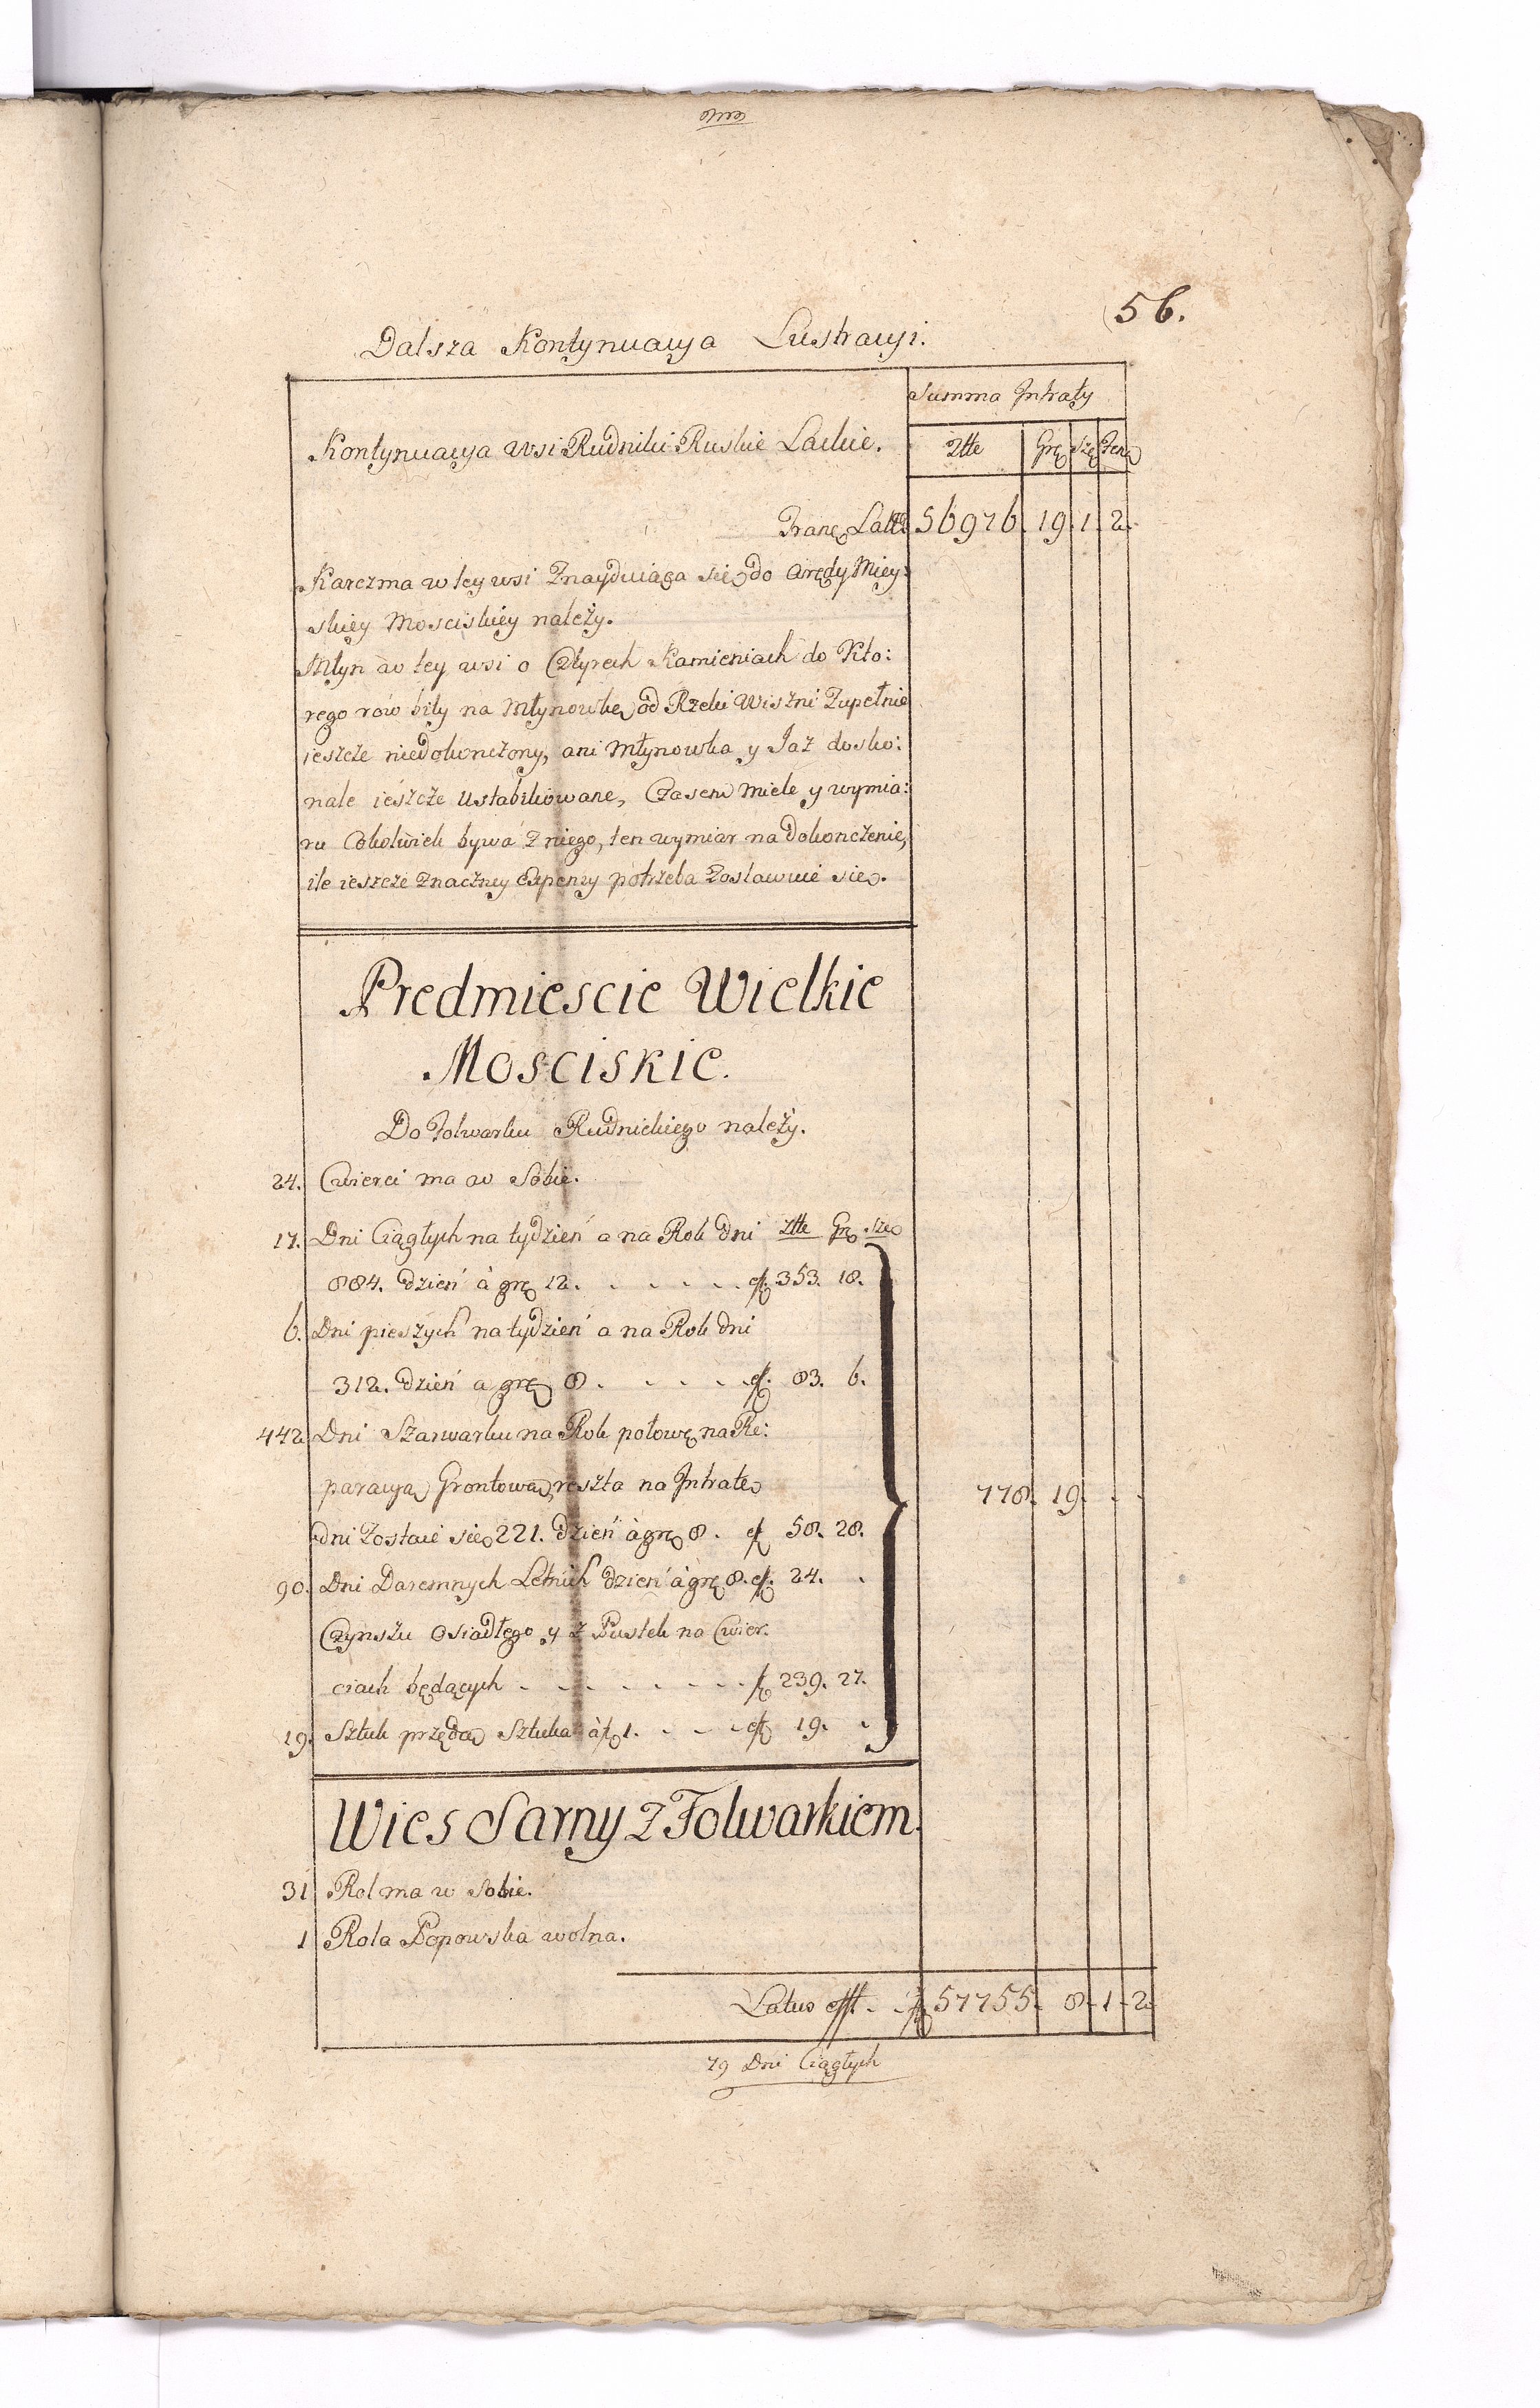 56.
Dalsza Kontynuacya Lustracyi.
Summa Intraty
Kontynuacya wsi Rudniki Ruskie Lackie.
Złle Grę Szę Fenę
Tranę Latte 56976. 19. 1. 2.
Karczma w tey wsi Znayduiąca się do Arędy Miey:
skiey Mosciskiey należy.
Młyn w tey wsi o Cztyrech Kamieniach do Kto:
rego rów bity na Młynowkę od Rzeki Wiszni Zupełnie
ieszcze niedokonczony, ani Młynowka y Jaz dosko:
nale ieszcze Ustabiliowane, Czasem Miele y wymia:
ru Cokolwiek bywa z niego, ten wymiar na Dokonczenie,
ile ieszcze Znaczney Expensy potrzeba Zostawuie się.
Predmiescie Wielkie
Mosciskie.
Do Folwarku Rudnickiego należy.
24. Cwierci ma w Sobie.
17. Dni Ciągłych na tydzień a na Rok dni Złle Grę Szę
884. dzień à grę 12. . . . . . . 353. 18.
6. Dni pieszych na tydzień a na Rok dni
312. dzień a grę 8 . . . . . . 83. 6.
442 Dni Szarwarku na Rok połowę na Re:
paracyą Grontową, reszta na Intratę
dni Zostaie się 221. dzień à grę 8. 58. 28.
778. 19. . .
90. Dni Daremnych Letnich dzień à grę 8. 24. .
Czynszu Osiadłego y z Pustek na Cwier:
ciach będących . . . . . . . . 239. 27.
19. Sztuk przędzy Sztuka à 1. . . . . 19. .
Wies Sarny z Folwarkiem.
31 Rol ma w Sobie.
1 Rola Popowska wolna.
Latus . . 57755. 8. 1. 2.
79 Dni Ciągłych